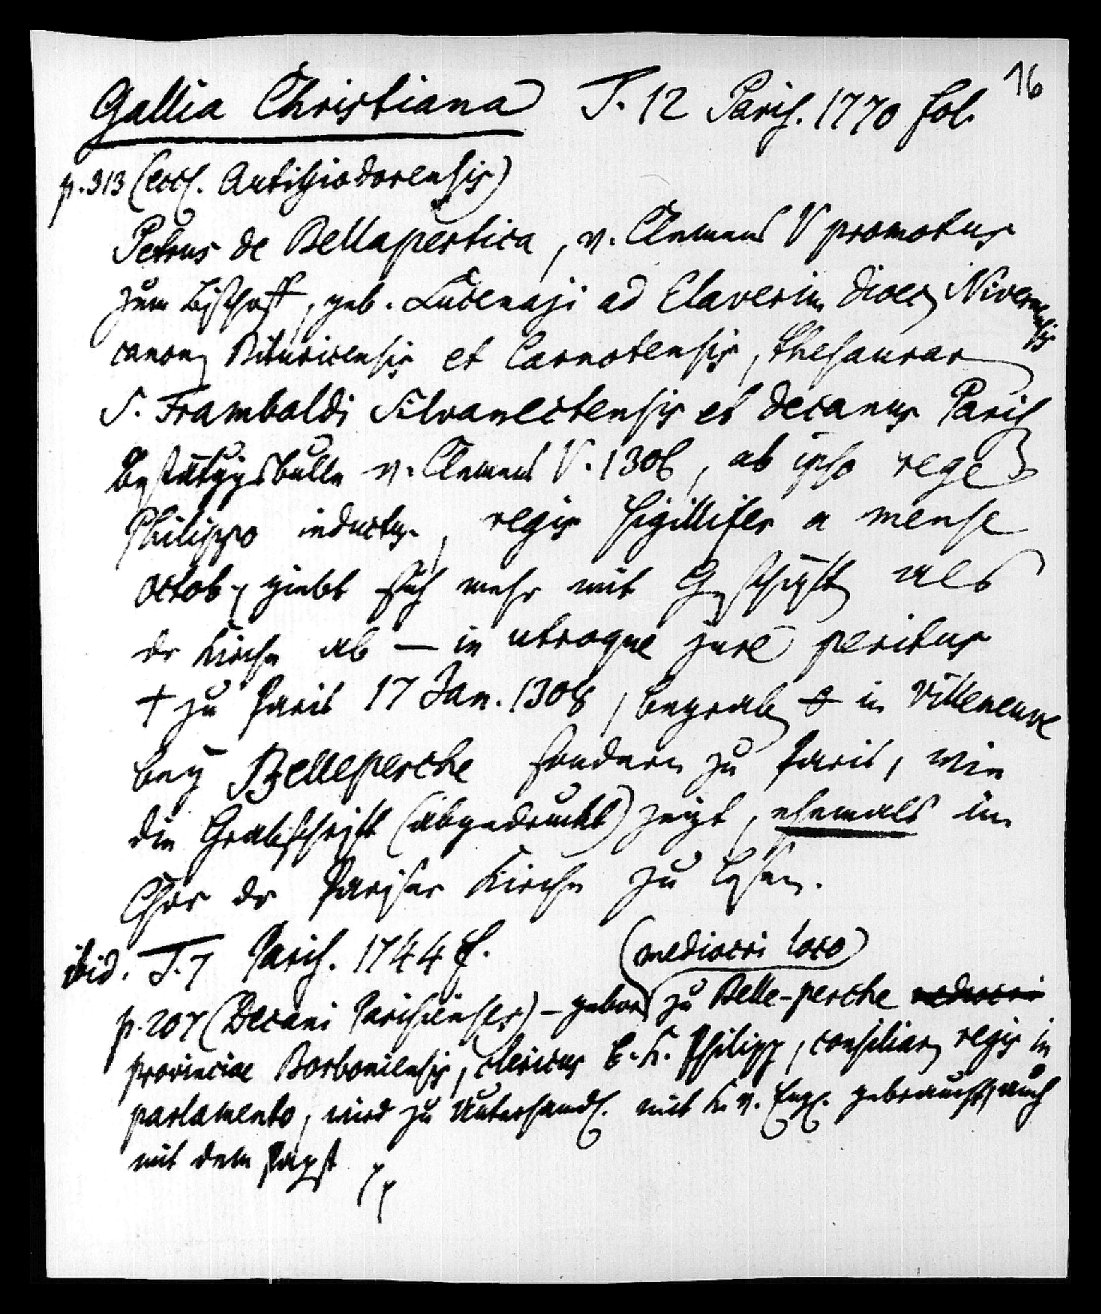 16
Gallia Christiana T. 12 Paris. 1770 fol.
p. 313 (eccl. Autissiodorensis)
Petrus de Bellapertica, v. Clemens V promotus
zum Bischoff, geb. Lucenaji ad Elaverim dioec Nivernensis
canon Bituricensis et Carnotensis, thesaurar
S. Frambaldi Silvanectensis et decanus Paris
Bestätiggsbulle v. Clemens V. 1306, ab ipso rege
Philippo inductus, regis sigillifer a mense
octob, giebt sich mehr mit Geschäften als
der Kirche ab — in utroque jure peritus
† zu Paris 17 Jan. 1308, begraben in Villeneuve
bey Belleperche sondern zu Paris, wie
die Grabschrift (abgedruckt) zeigt, ehemals im
Chor der Pariser Kirche zu lesen.
ibid. T. 7 Paris. 1744 f.
(mediocri loco)
p. 207 (Decani Parisienses) – geboren zu Belle-perche mediocri
provinciae Borboniensis, clericus b. K. Philipp, consiliar regis in
parlamento, wird zu Unterhandl. mit K. v. Engl. gebraucht, auch
mit dem Papst